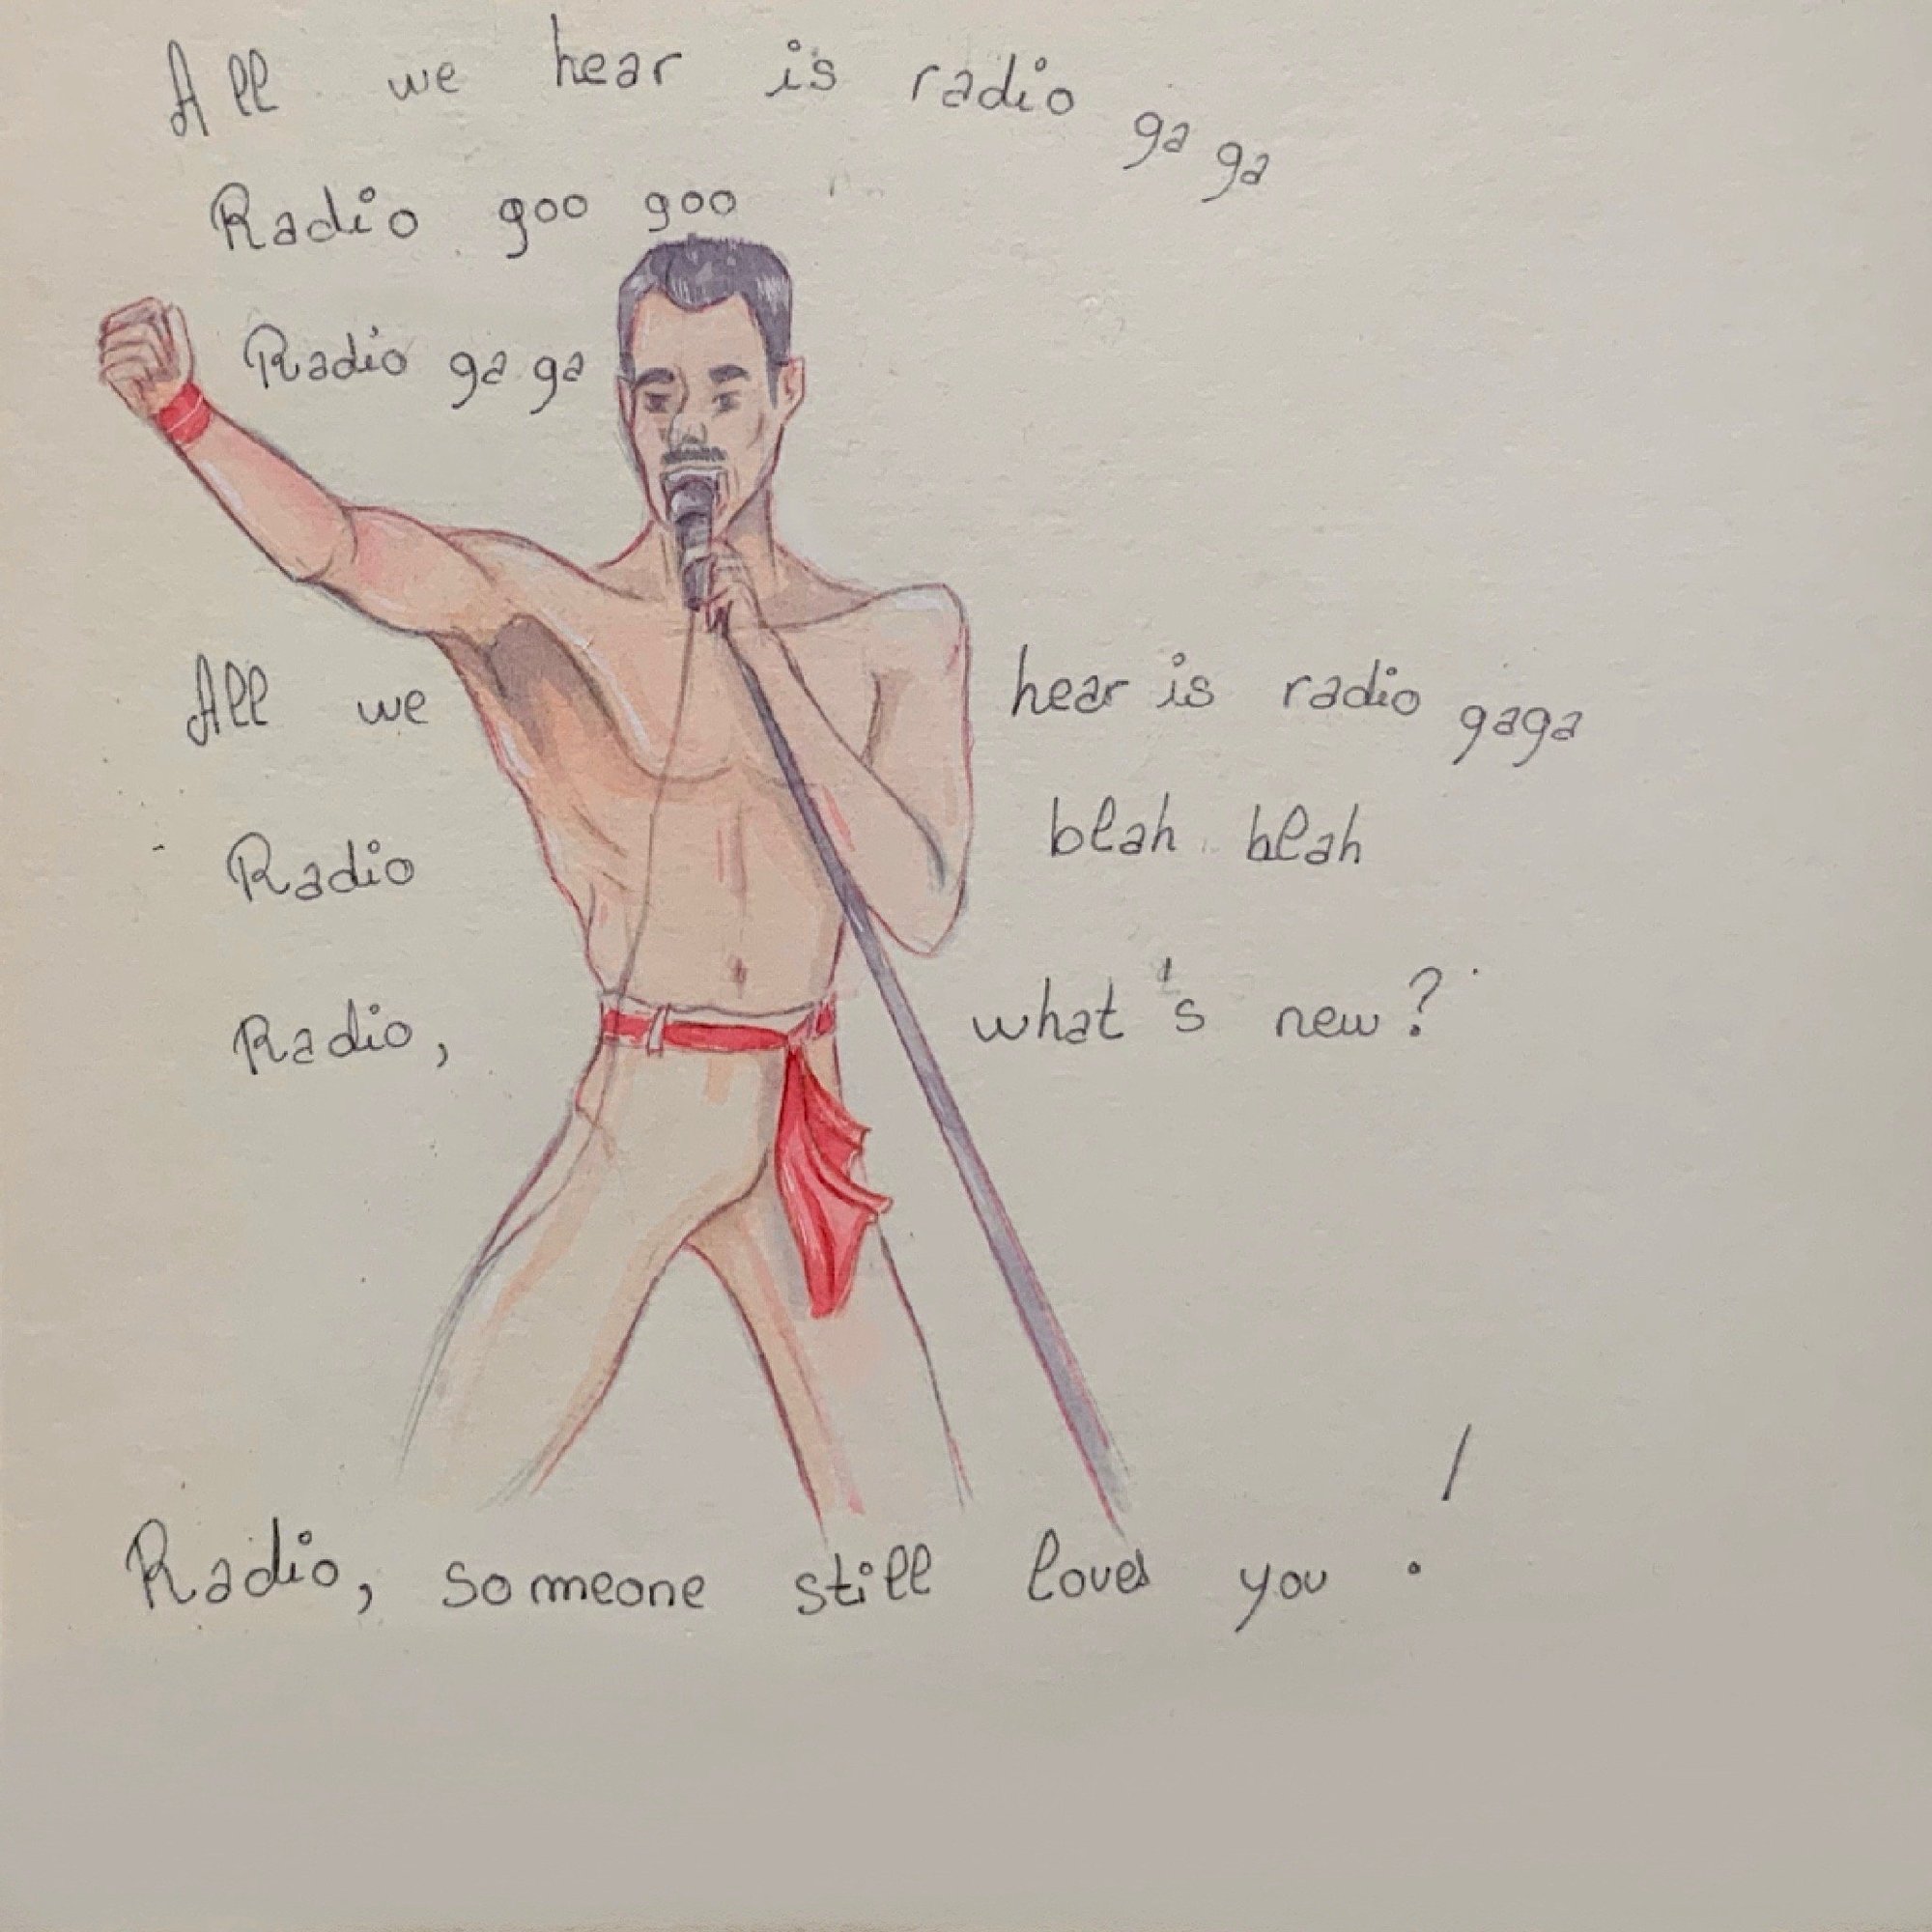 All we hear is radio ga ga
Radio goo goo
Radio ga ga
All we hear is radio gaga
Radio blah blah
Radio, what's new?
Radio, someone still loves you!